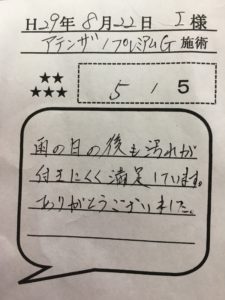 H29年8月22日 I様
アテンザ/プレミアムG 施術
★★
★★★
5/5
雨の日の後も汚れが
付きにくく満足しています。
ありがとうございました。